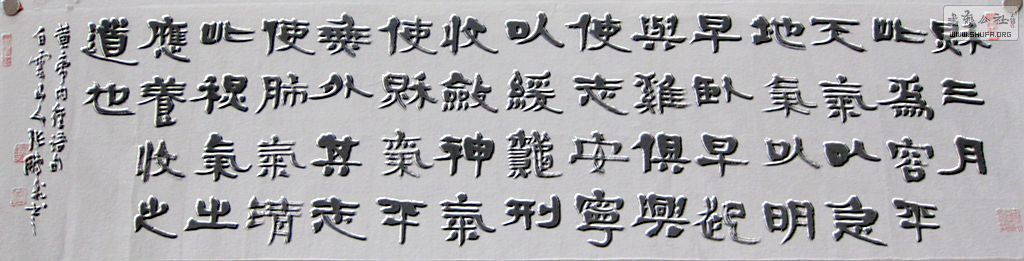 秋三月
此為容平
天氣以急
地氣以明
早臥早起
與雞俱興
使志安寧
以緩龝刑
收斂神氣
使秋氣平
無外其志
使肺氣清
此秋氣之
應養收之
道也
黄帝内经语句
白雲山人张
書藝公社
WWW.SHUFA.ORG